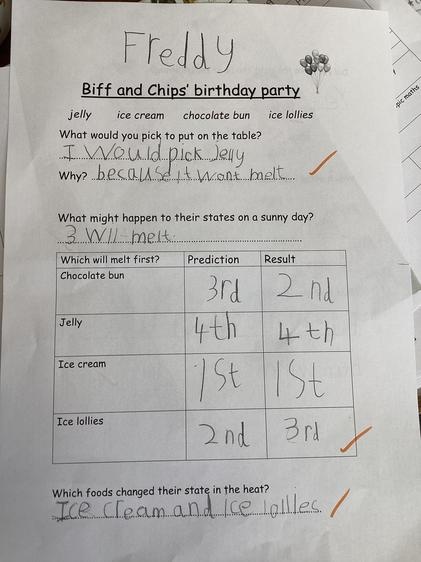 Freddy
Biff and Chips' birthday party
jelly ice cream chocolate bun ice lollies
What would you pick to put on the table?
I would pick Jelly
Why? because it wont melt
What might happen to their states on a sunny day?
3 will melt
Which will melt first? Prediction Result
Chocolate bun 3rd 2nd
Jelly 4th 4th
Ice cream 1st 1st
Ice lollies 2nd 3rd
Which foods changed their state in the heat?
Ice cream and ice lollies